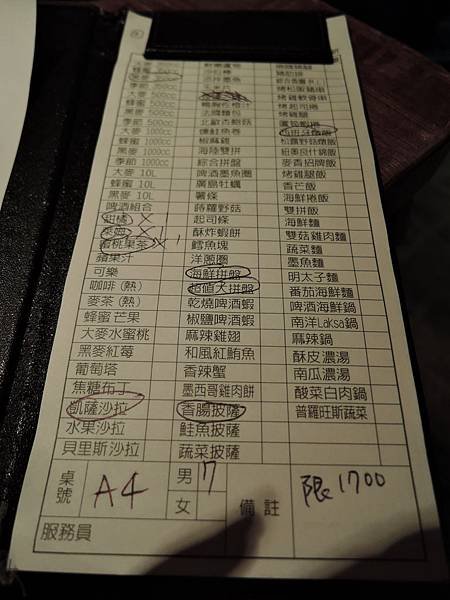 蜂蜜 300cc
黑麥
季節 500cc
大麥 500cc
蜂蜜 500cc
黑麥 500cc
季節 500cc
大麥 1000cc
蜂蜜 1000cc
黑麥 1000cc
季節 1000cc
大麥 10L
蜂蜜 10L
黑麥 10L
啤酒組合
柑橘 X
萊姆 X
蜜桃果茶 X 1
蘋果汁
可樂
咖啡(熱)
麥茶(熱)
蜂蜜芒果
大麥水蜜桃
黑麥紅莓
葡萄塔
焦糖布丁
凱薩沙拉
水果沙拉
貝里斯沙拉
法國麵包
北歐杏鮑菇
燻鮭魚卷
椒麻雞
海陸雙拼
綜合拼盤
啤酒墨魚圈
廣島牡蠣
薯條
蒔蘿野菇
起司條
酥炸蝦餅
鱈魚塊
洋蔥圈
海鮮拼盤
超值大拼盤
乾燒啤酒蝦
椒鹽啤酒蝦
麻辣雞翅
和風紅鮒魚
香辣蟹
墨西哥雞肉餅
香腸披薩
鮭魚披薩
蔬菜披薩
烤松阪豬串
烤雞軟骨串
烤起司捲
烤雞腿
松露野菇燉飯
紐奧良什錦飯
麥香招牌飯
烤雞腿飯
香芒飯
海鮮捲飯
雙拼飯
海鮮麵
雙菇雞肉麵
蔬菜麵
墨魚麵
明太子麵
番茄海鮮麵
啤酒海鮮鍋
南洋Laksa鍋
麻辣鍋
酥皮濃湯
南瓜濃湯
酸菜白肉鍋
普羅旺斯蔬菜
桌號 A4
男 17
女
備註 限1700
服務員